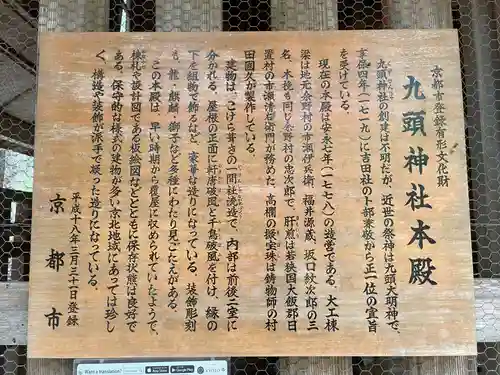 京都市登録有形文化財
九頭神社本殿
九頭神社の創建は不明だが、近世の祭神は九頭大明神で、
享保四年(一七一九)に吉田社の卜部兼敬から正一位の宣旨
を受けている。
現在の本殿は安永七年(一七七八)の造営である。大工棟
梁は地元余野村の市瀬伊兵衛、福井源蔵、坂口紋次郎の三
名、木挽も同じ余野村の忠次郎で、肝煎は若狭国大飯郡日
置村の市瀬清右衛門が務めた。高欄の擬宝珠は鋳物師の村
田国久が製作している。
建物は、こけら葺さの一間社流造で、内部は前後二室に
分かれる。屋根の正面に軒唐破風と千鳥破風を付け、縁の
下を組物で飾るなど、豪華な造りになっている。装飾彫刻
も、龍・麒麟・獅子など多種にわたり見ごたえがある。
この本殿は、早い時期から覆屋に収められていたようで、
棟札や設計図である板絵図などとともに保存状態は良好で
ある。保守的な様式の建物が多い京北地域にあっては珍し
く、構造や装飾が派手で凝った造りになっている。
平成十八年三月三十日登録
京都市
Want a translation?
App Store
Google Play